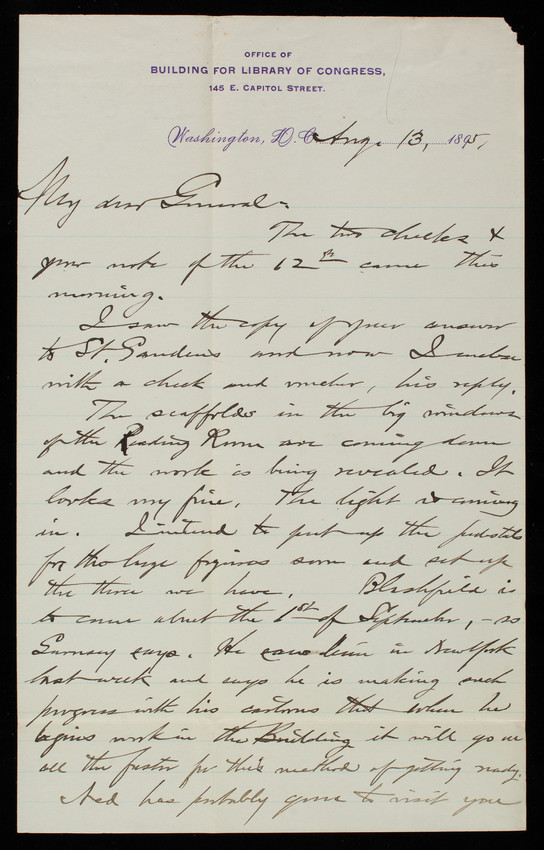 OFFICE OF
BUILDING FOR LIBRARY OF CONGRESS,
145 E. CAPITOL STREET.
Washington, D.C. Aug. 13, 1895,
My dear General-
The two checks &
your note of the 12th came this
morning.
I saw the copy of your answer
to St. Gaudens and now I enclose
with a check and voucher, his reply.
The scaffolds in the big windows
of the Reading Room are coming down
and the work is being revealed. It
looks very fine. The light is coming
in. I intend to put up the pedestals
for the large figures soon and set up
the three we have. Blashfield is
to come about the 1st of September, - so
Garnsey says. He saw him in New York
last week and says he is making such
progress with his cartoons that when he
begins work in the Building it will go on
all the faster for this method of getting ready.
Ned has probably gone to visit your